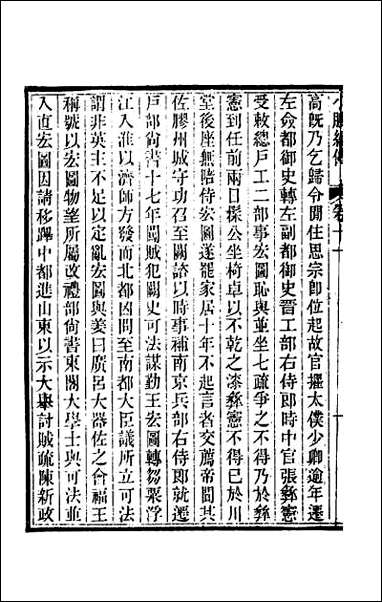 小腆紀傳 卷十一
高既乃乞歸令閒住思宗即位起故官擢太僕少卿逾年遷
左僉都御史轉左副都御史晉工部右侍郎時中官張彝憲
受敕總戶工二部事宏圖恥與並坐七疏爭之不得乃於彝
憲到任前兩日揉公坐椅卓以不乾之漆彝憲不得已於川
堂後座無陪侍宏圖遂罷家居十年不起言者交薦帝問其
佐膠州城守功召至關諮以時事補南京兵部右侍郎就遷
戶部尚書十七年闖賊犯關史可法謀勤王宏圖轉芻粟浮
江入淮以濟師方發而北都凶問至南都大臣議所立可法
謂非英主不足以定亂宏圖與姜曰廣呂大器佐之會福王
稱號以宏圖物望所屬改禮部尚書東閣大學士與可法並
入直宏圖因請移蹕中都進山東以示大舉討賊疏陳新政